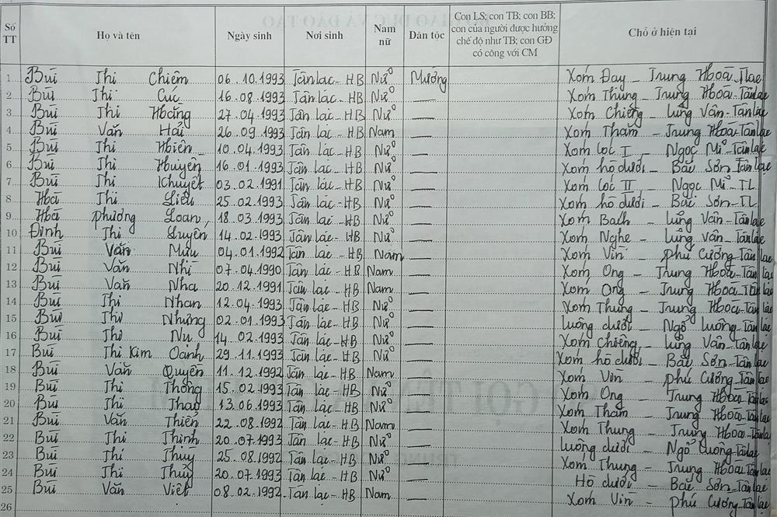 Số TT Họ và tên Ngày sinh Nơi sinh Nam nữ Dân tộc Con LS; con TB; con BB; con của người được hưởng chế độ như TB; con GĐ có công với CM Chỗ ở hiện tại
1 Bùi Thị Chiêm 06.10.1993 Tân Lạc - HB Nữ Mường Xóm Đay - Trung Hoà -
2 Bùi Thị Cúc 16.08.1993 Tân Lạc - HB Nữ — Xóm Thung - Trung Hoà - Tân Lạc
3 Bùi Thị Hoàng 27.04.1993 Tân Lạc - HB Nữ — Xóm Chiềng - Lũng Vân - Tân Lạc
4 Bùi Văn Hải 26.09.1993 Tân Lạc - HB Nam — Xóm Thăm - Trung Hoà - Tân Lạc
5 Bùi Thị Hiên 10.04.1993 Tân Lạc - HB Nữ — Xóm Lóc I - Ngọc Mĩ - Tân Lạc
6 Bùi Thị Huyền 16.01.1993 Tân Lạc - HB Nữ — Xóm hồ dưới - Bắc Sơn - Tân Lạc
7 Bùi Thị Khuyết 03.02.1991 Tân Lạc - HB Nữ — Xóm Lóc II - Ngọc Mĩ - TL
8 Hà Thị Liễu 25.02.1993 Tân Lạc - HB Nữ — Xóm hồ dưới - Bắc Sơn - TL
9 Hà Phương Loan 18.03.1993 Tân Lạc - HB Nữ — Xóm Bách - Lũng Vân - Tân Lạc
10 Đinh Thị Luyên 14.02.1993 Tân Lạc - HB Nữ — Xóm Nghẹ - Lũng Vân - Tân Lạc
11 Bùi Văn Mưu 04.01.1992 Tân Lạc - HB Nam — Xóm Vin - Phú Cường - Tân Lạc
12 Bùi Văn Nhị 07.04.1990 Tân Lạc - HB Nam — Xóm Ong - Trung Hoà - Tân Lạc
13 Bùi Văn Nha 20.12.1991 Tân Lạc - HB Nam — Xóm Ong - Trung Hoà - Tân Lạc
14 Bùi Thị Nhan 12.04.1993 Tân Lạc - HB Nữ — Xóm Thung - Trung Hoà - Tân Lạc
15 Bùi Thị Nhung 02.01.1993 Tân Lạc - HB Nữ — Luông dưới - Ngổ Luông - Tân Lạc
16 Bùi Thị Nụ 14.02.1993 Tân Lạc - HB Nữ — Xóm Chiềng - Lũng Vân - Tân Lạc
17 Bùi Thị Kim Oanh 29.11.1993 Tân Lạc - HB Nữ — Xóm hồ dưới - Bắc Sơn - Tân Lạc
18 Bùi Văn Quyên 11.12.1992 Tân Lạc - HB Nam — Xóm Vin - Phú Cường - Tân Lạc
19 Bùi Thị Thông 15.02.1993 Tân Lạc - HB Nữ — Xóm Ong - Trung Hoà - Tân Lạc
20 Bùi Thị Thao 13.06.1993 Tân Lạc - HB Nữ — Xóm Thăm - Trung Hoà - Tân Lạc
21 Bùi Văn Thiên 22.08.1992 Tân Lạc - HB Nam — Xóm Thung - Trung Hoà - Tân Lạc
22 Bùi Thị Thịnh 20.07.1993 Tân Lạc - HB Nữ — Luông dưới - Ngổ Luông - Tân Lạc
23 Bùi Thị Thuỷ 25.08.1992 Tân Lạc - HB Nữ — Xóm Thung - Trung Hoà - Tân Lạc
24 Bùi Thị Thuỷ 20.07.1993 Tân Lạc - HB Nữ — Hồ dưới - Bắc Sơn - Tân Lạc
25 Bùi Văn Việt 08.02.1992 Tân Lạc - HB Nam — Xóm Vin - Phú Cường - Tân Lạc
26